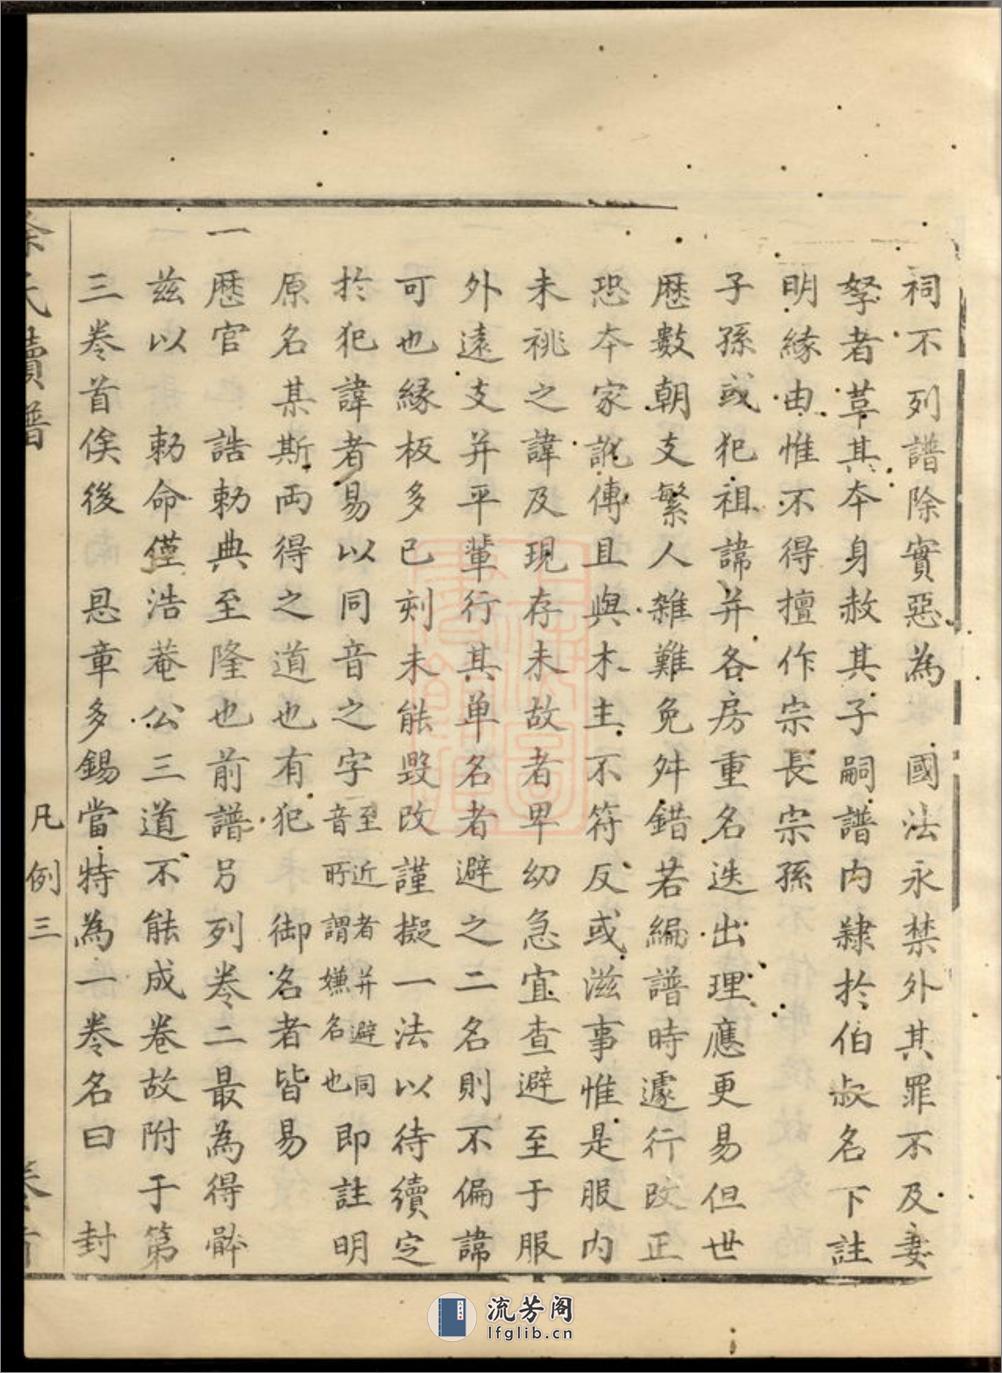 祠不列譜除實惡為　國法永禁外其罪不及妻
孥者草其本身赦其子嗣譜内隸於伯叔名下註
明緣由惟不得擅作宗長宗孫
子孫或犯祖諱并各房重名迭出理應更易但世
歷數朝支繁人雜難免舛錯若編譜時遽行改正
恐夲家訛傳且與木主不符反或滋事惟是服内
未祧之諱及現存未故者卑幼急宜查避至于服
外遠支并平輩行其单名者避之二名則不偏諱
可也緣板多已刻未能毁改謹擬一法以待續定
於犯諱者易以同音之字至近者并避同音所謂嫌名也即註明
原名某斯両得之道也有犯　御名者皆易
一歷官　誥勅典至隆也前譜另列卷二最為得體
茲以　勅命僅浩菴公三道不能成卷故附于第
三卷首俟後　恩章多錫當特為一卷名曰　封
氏續譜
凡例三
卷首
流芳阁
lfglib.cn